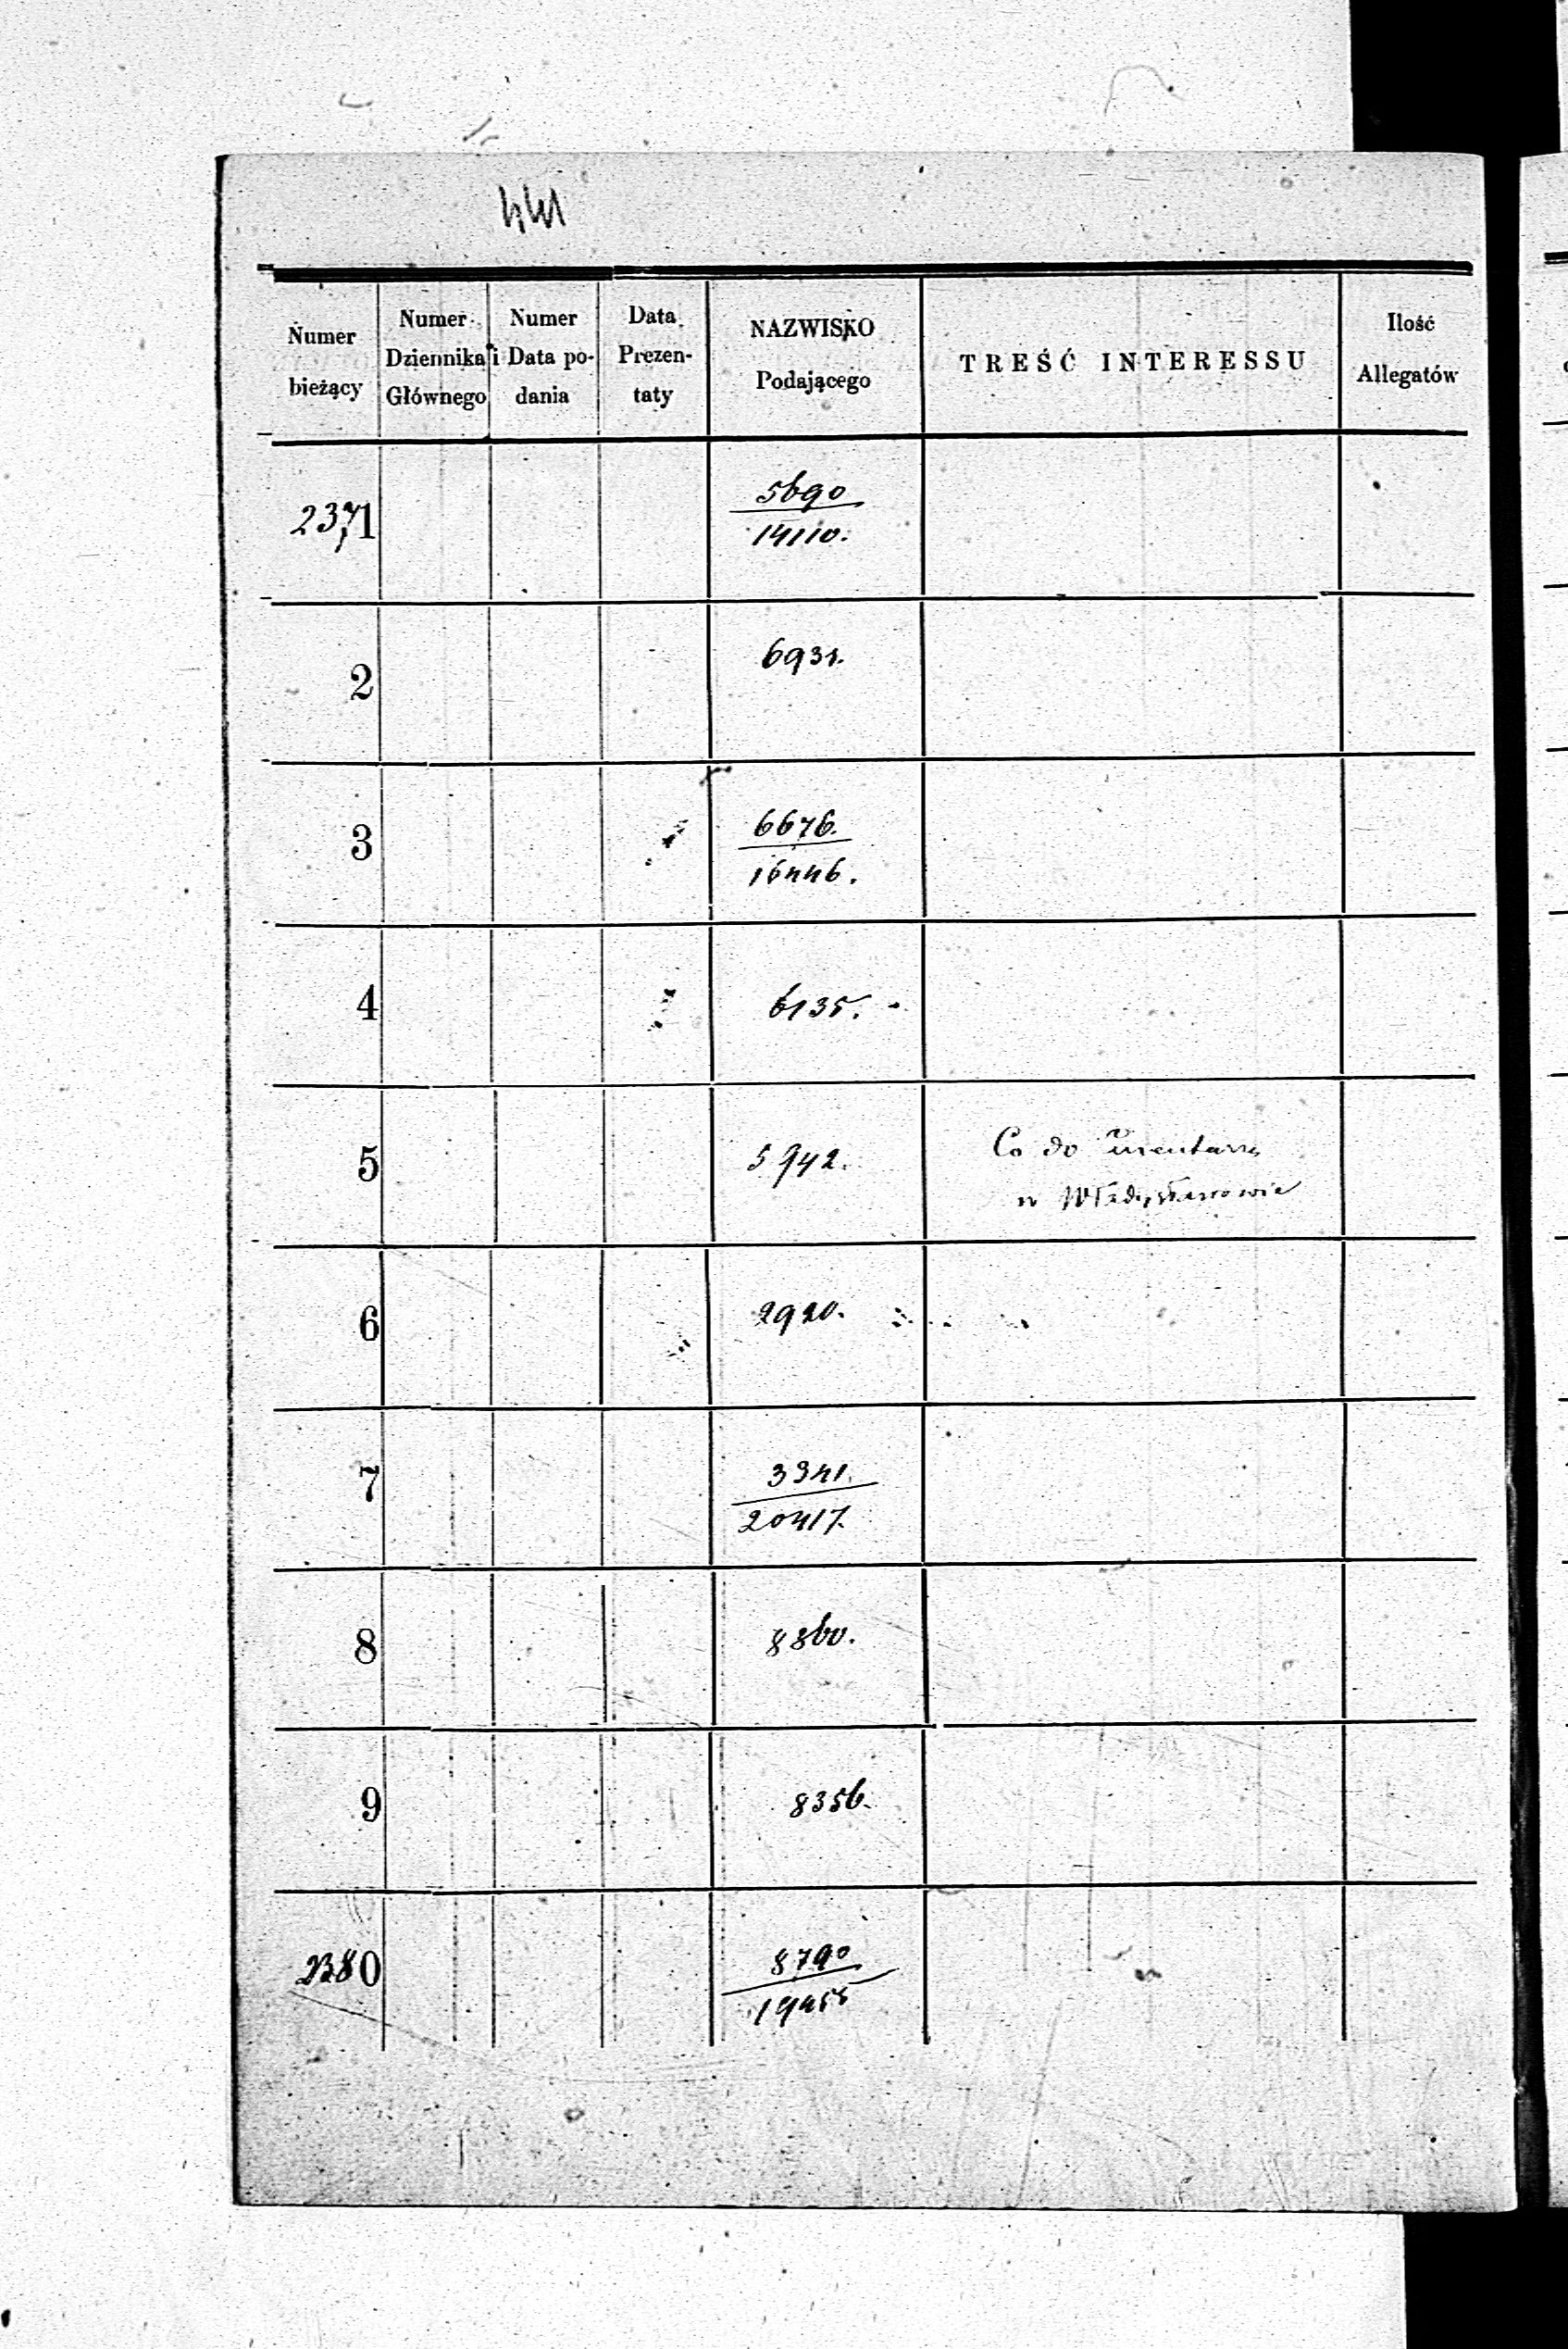 Numer bieżący
Numer Dziennika Głównego
Numer i Data podania
Data Prezentaty
NAZWISKO Podającego
TREŚĆ INTERESSU
Ilość Allegatów
2371
5690
14110.
2
6931.
3
6676.
16446.
4
6135.
5
5942.
Co do
w Władysławowie
6
2920.
7
3341.
20417.
8
8860.
9
8356.
2380
8790
19455